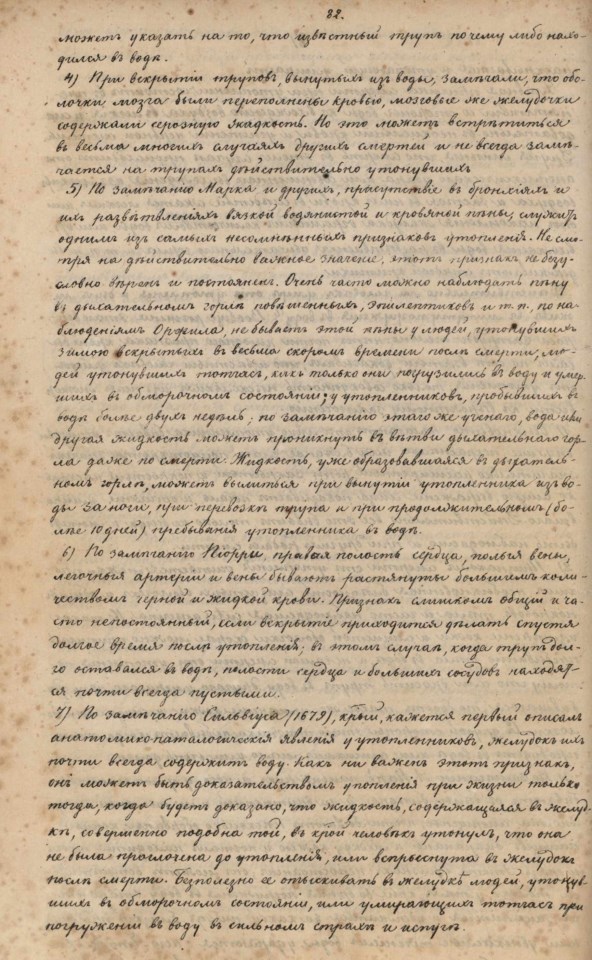 82.
можетъ указать на то, что извѣстный трупъ почему либо нахо-
дился въ водѣ.
4) При вскрытіи труповъ, вынутыхъ изъ воды, замѣчали, что обо-
лочки мозга были переполнены кровью, мозговые же желудочки
содержали серозную жидкость. Но это можетъ встрѣтиться
въ весьма многихъ случаяхъ другихъ смертей и не всегда замѣ-
чается на трупахъ дѣйствительно утонувшихъ
5) По замѣчанію Марка и другихъ, присутствіе въ бронхіяхъ и
ихъ развѣтвленіяхъ вязкой водянистой и кровяной пѣны, служитъ
однимъ изъ самыхъ несомнѣнныхъ признаковъ утопленія. Не смо-
тря на дѣйствительно важное значеніе, этотъ признакъ не безу-
словно вѣренъ и постояненъ. Очень часто можно наблюдать пѣну
въ дыхательномъ горлѣ повѣшенныхъ, эпилептиковъ и т. п., по на-
блюденіямъ Орфила, не бываетъ этой пѣны у людей, утонувшихъ
зимою вскрытыхъ въ весьма скоромъ времени послѣ смерти, лю-
дей утонувшихъ тотчасъ, какъ только они погрузились въ воду и умер-
шихъ въ обморочномъ состояніи; у утопленниковъ, пробывшихъ въ
водѣ болѣе двухъ недѣль; по замѣчанію этаго же ученаго, вода или
другая жидкость можетъ проникнуть въ вѣтви дыхательнаго гор-
ла даже по смерти. Жидкость, уже образовавшаяся въ дыхатель-
номъ горлѣ, можетъ вылиться при вынутіи утопленника изъ во-
ды за ноги, при перевозкѣ трупа и при продолжительномъ (бо-
лѣе 10 дней) пребыванія утопленника въ водѣ.
6) По замѣчанію Піорри, правая полость сердца, полыя вены,
легочныя артеріи и вены бываютъ растянуты большимъ коли-
чествомъ черной и жидкой крови. Признакъ слишкомъ общій и ча-
сто непостоянный, если вскрытіе приходится дѣлать спустя
долгое время послѣ утопленія; въ этомъ случаѣ, когда трупъ дол-
го оставался въ водѣ, полости сердца и большихъ сосудовъ находят-
ся почти всегда пустыми.
7) По замѣчанію Сильвіуса (1679), к҃рый, кажется первый описалъ
анатомико-паталогическія явленія у утопленниковъ, желудокъ ихъ
почти всегда содержитъ воду. Какъ ни важенъ этотъ признакъ,
онъ можетъ быть доказательствомъ утопленія при жизни только
тогда, когда будетъ доказано, что жидкость, содержащаяся въ желуд-
кѣ, совершенно подобна той, въ к҃рой человѣкъ утонулъ, что она
не была проглочена до утопленія, или вспрыснута въ желудокъ
послѣ смерти. Безполезно ее отыскивать въ желудкѣ людей, утонув-
шихъ въ обморочномъ состояніи, или умирающихъ тотчасъ при
погруженіи въ воду въ сильномъ страхѣ и испугѣ.